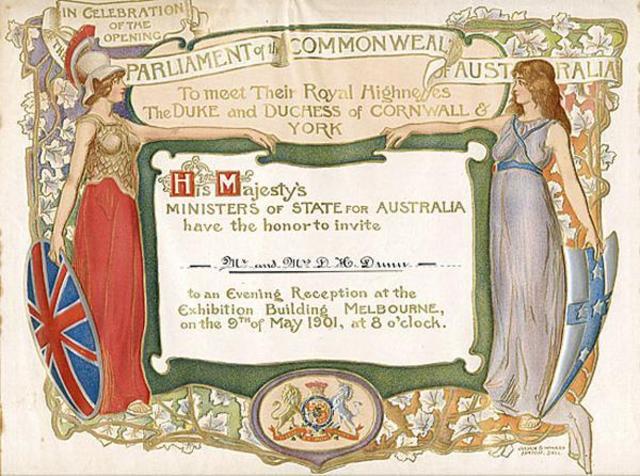 IN CELEBRATION
OF THE
OPENING
THE
PARLIAMENT of the COMMONWEAL
of AUSTRALIA
To meet Their Royal Highnesses
The DUKE and DUCHESS of CORNWALL &
YORK
His Majesty's
MINISTERS OF STATE FOR AUSTRALIA
have the honor to invite
Mr and Mrs D. H. Dunn
to an Evening Reception at the
Exhibition Building MELBOURNE,
on the 9TH of May 1901, at 8 o'clock.